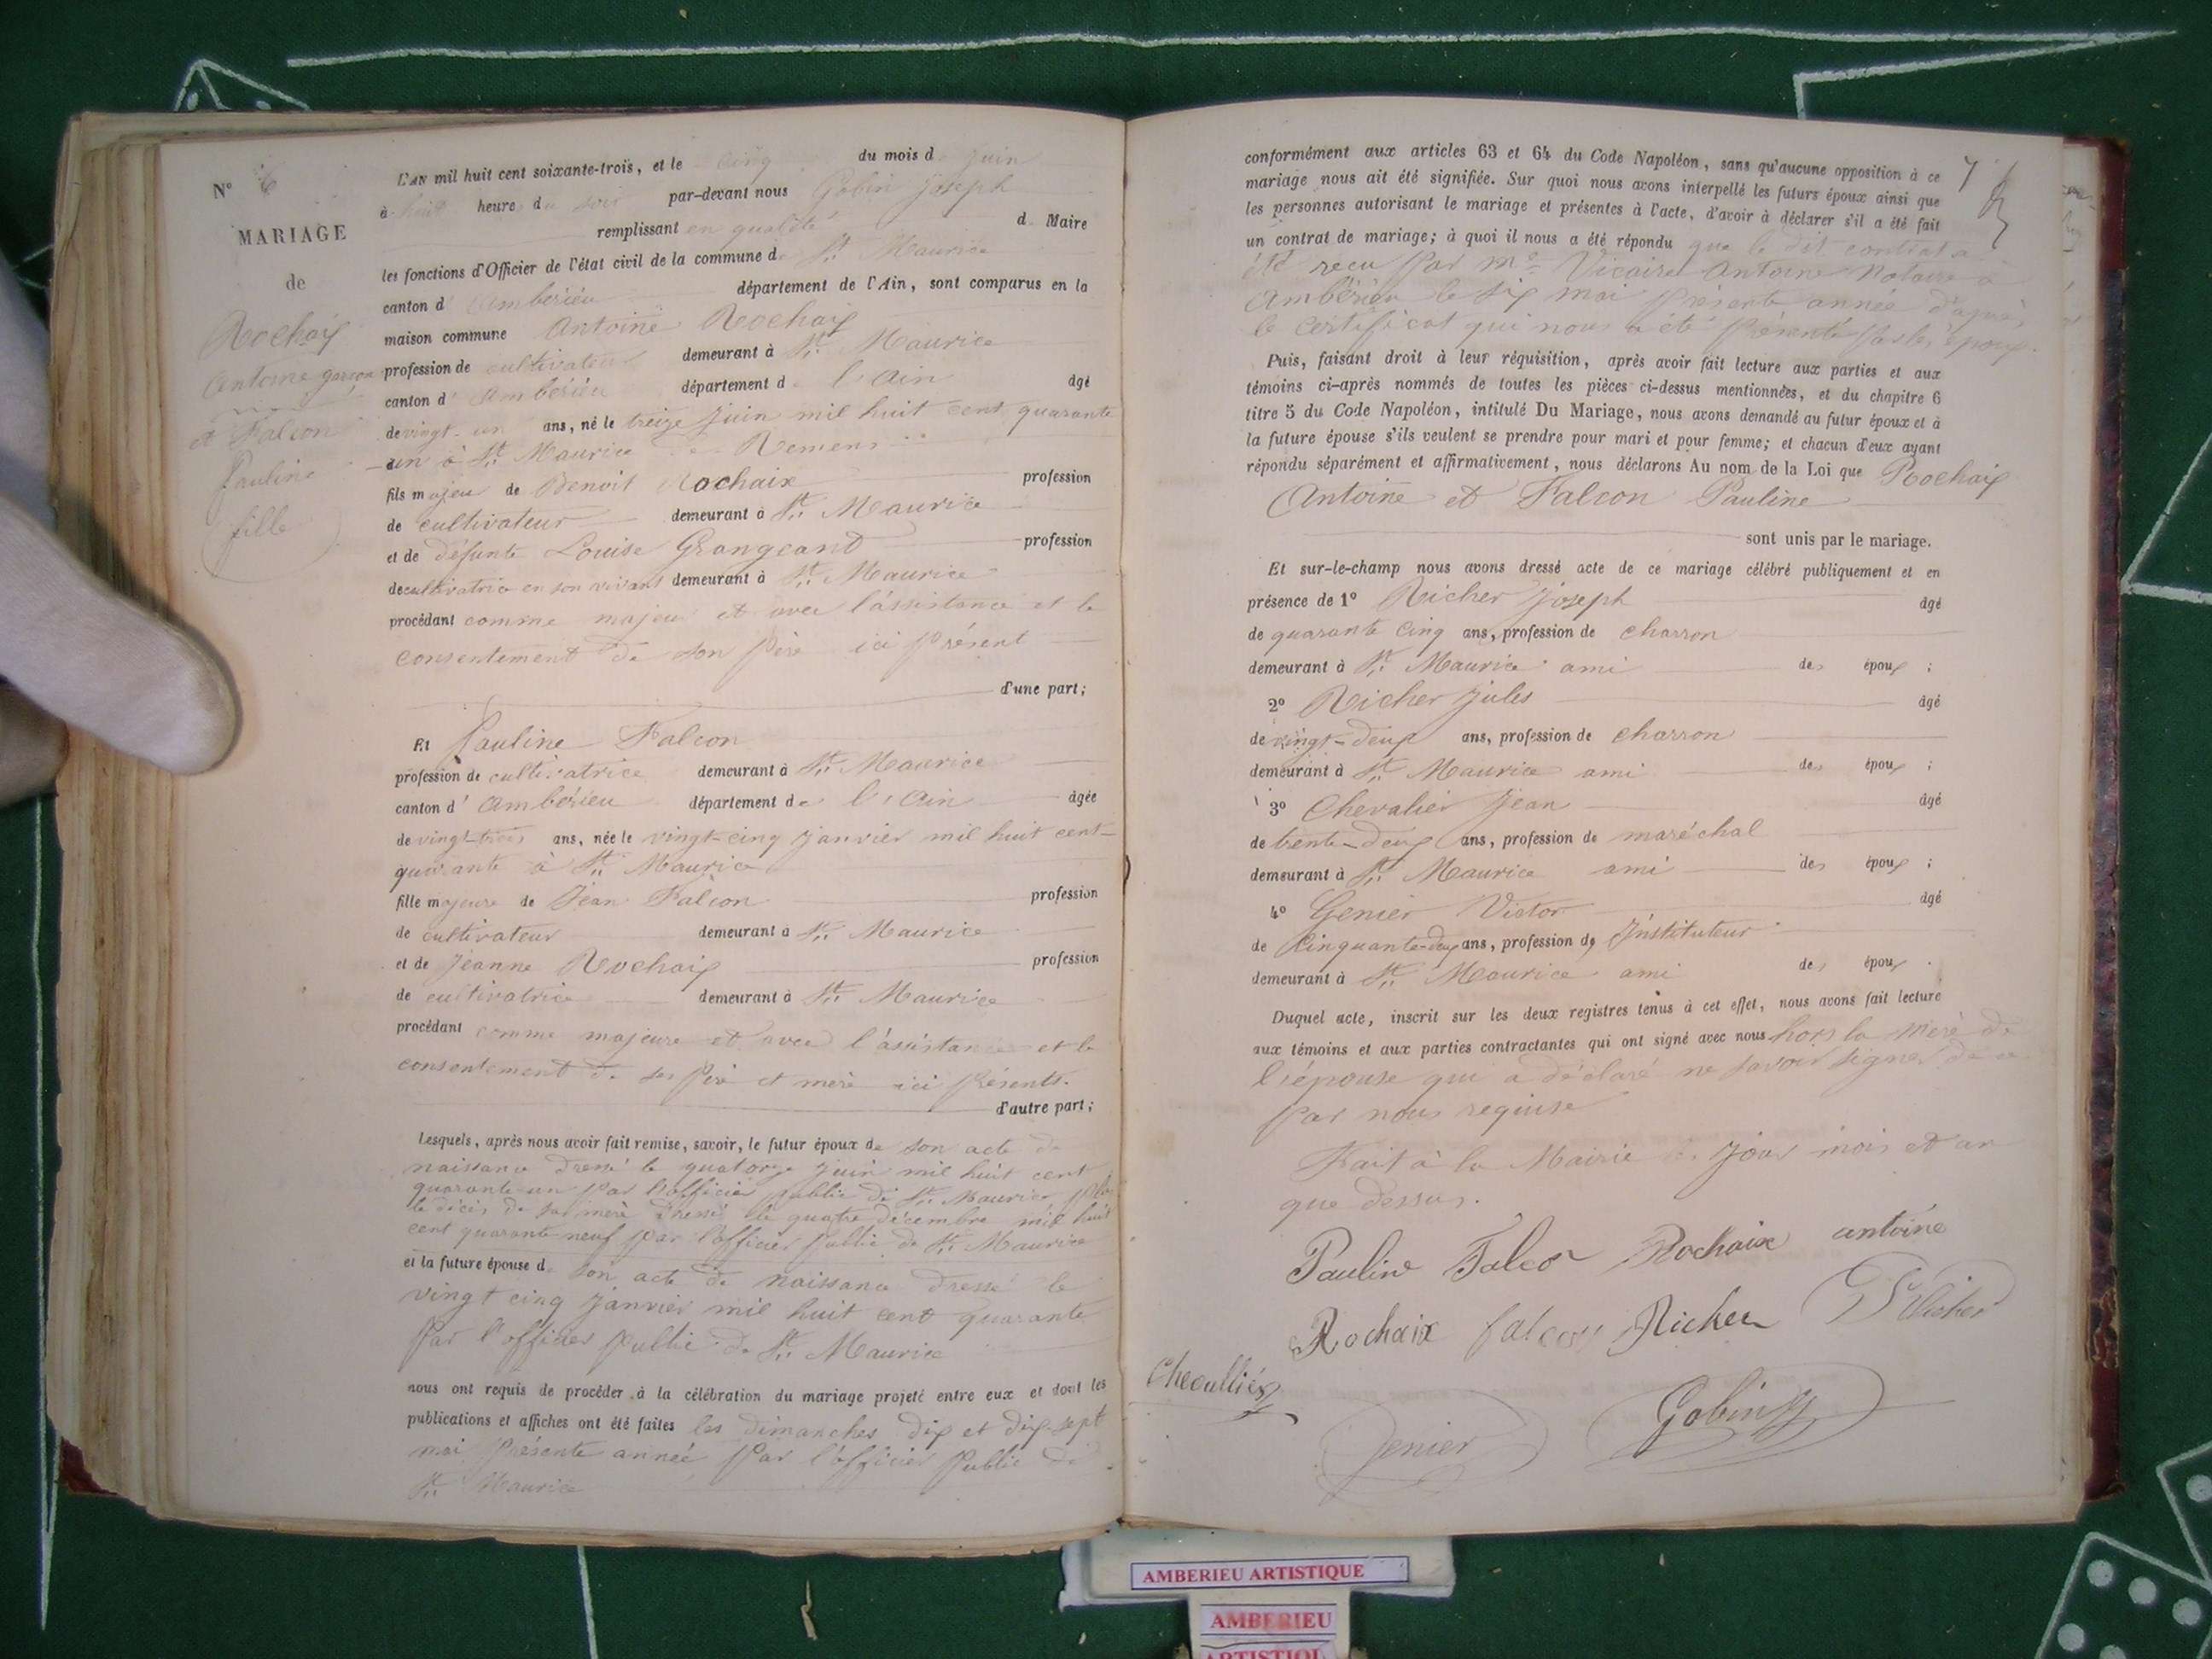 N° 6
MARIAGE
de
Rochaix
Antoine garçon
et Falcon
Pauline
fille
L'AN mil huit cent soixante-trois, et le cinq du mois de Juin
à huit heures du soir par-devant nous Gobin Joseph
remplissant en qualité de Maire
les fonctions d'Officier de l'état civil de la commune de St. Maurice
canton d' Ambérieu département de l'Ain, sont comparus en la
maison commune Antoine Rochaix
profession de cultivateur demeurant à St. Maurice
canton d' Ambérieu département de l'Ain âgé
de vingt-un ans, né le treize Juin mil huit cent quarante
-un à St. Maurice de Remens
fils majeur de Benoit Rochaix profession
de cultivateur demeurant à St. Maurice
et de défunte Louise Grangeant profession
de cultivatrice en son vivant demeurant à St. Maurice
procédant comme majeur et avec l'assistance et le
consentement de son père ici présent
d'une part;
Et Pauline Falcon
profession de cultivatrice demeurant à St. Maurice
canton d' Ambérieu département de l'Ain âgée
de vingt-trois ans, née le vingt-cinq Janvier mil huit cent-
quarante à St. Maurice
fille majeure de Jean Falcon profession
de cultivateur demeurant à St. Maurice
et de Jeanne Rochaix profession
de cultivatrice demeurant à St. Maurice
procédant comme majeure et avec l'assistance et le
consentement de ses père et mère ici présents.
d'autre part;
Lesquels, après nous avoir fait remise, savoir, le futur époux de son acte de
naissance dressé le quatorze Juin mil huit cent
quarante-un par l'officier public de St. Maurice, plus
le décès de sa mère dressé le quatre décembre mil huit
cent quarante neuf par l'officier public de St. Maurice
et la future épouse de son acte de naissance dressé le
vingt cinq Janvier mil huit cent quarante
par l'officier public de St. Maurice
nous ont requis de procéder à la célébration du mariage projeté entre eux et dont les
publications et affiches ont été faites les dimanches dix et dix-sept
mai présente année par l'officier public de
St. Maurice
7
conformément aux articles 63 et 64 du Code Napoléon, sans qu'aucune opposition à ce
mariage nous ait été signifiée. Sur quoi nous avons interpellé les futurs époux ainsi que
les personnes autorisant le mariage et présentes à l'acte, d'avoir à déclarer s'il a été fait
un contrat de mariage; à quoi il nous a été répondu que le dit contrat a
été reçu par Me Vicaire Antoine Notaire à
Ambérieu le six mai présente année d'après
le certificat qui nous a été présenté par les époux.
Puis, faisant droit à leur réquisition, après avoir fait lecture aux parties et aux
témoins ci-après nommés de toutes les pièces ci-dessus mentionnées, et du chapitre 6
titre 5 du Code Napoléon, intitulé Du Mariage, nous avons demandé au futur époux et à
la future épouse s'ils veulent se prendre pour mari et pour femme; et chacun d'eux ayant
répondu séparément et affirmativement, nous déclarons Au nom de la Loi que Rochaix
Antoine et Falcon Pauline
sont unis par le mariage.
Et sur-le-champ nous avons dressé acte de ce mariage célébré publiquement et en
présence de 1° Richer Joseph âgé
de quarante cinq ans, profession de charron
demeurant à St. Maurice ami des époux;
2° Richer Jules âgé
de vingt-deux ans, profession de charron
demeurant à St. Maurice ami des époux;
3° Chevalier Jean âgé
de trente-deux ans, profession de maréchal
demeurant à St. Maurice ami des époux;
4° Genier Victor âgé
de Cinquante-deux ans, profession de Instituteur
demeurant à St. Maurice ami des époux.
Duquel acte, inscrit sur les deux registres tenus à cet effet, nous avons fait lecture
aux témoins et aux parties contractantes qui ont signé avec nous hors la mère de
l'épouse qui a déclaré ne savoir signer de ce
par nous requise
Fait à la Mairie les Jour mois et an
que dessus.
Pauline Falcon Rochaix antoine
Rochaix falcon Richer Richer
Chevallier
Genier Gobin
AMBERIEU ARTISTIQUE
AMBERIEU
ARTISTIQUE